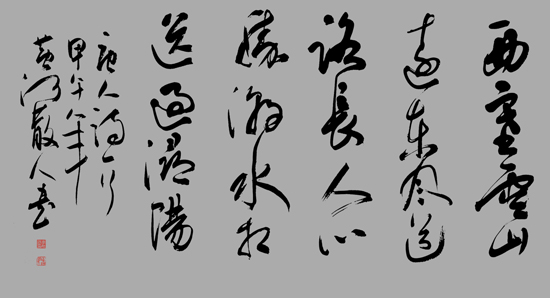 西塞雲山
遠東風道
路長人心
勝潮水相
送過潯陽
唐人詩一首
甲午年
黄河散人書